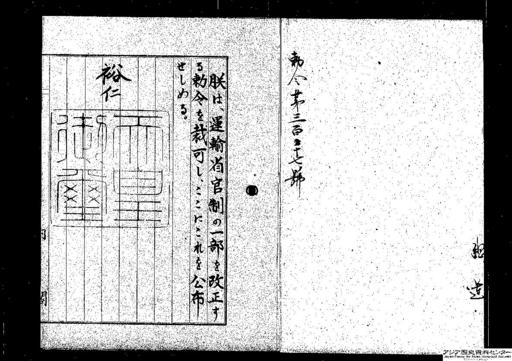 勅令第三百五十七號
朕は、運輸省官制の一部を改正す
る勅令を裁可し、ここにこれを公布
せしめる。
裕仁
天皇
御璽
内閣
アジア歴史資料センター
Japan Center for Asian Historical Records